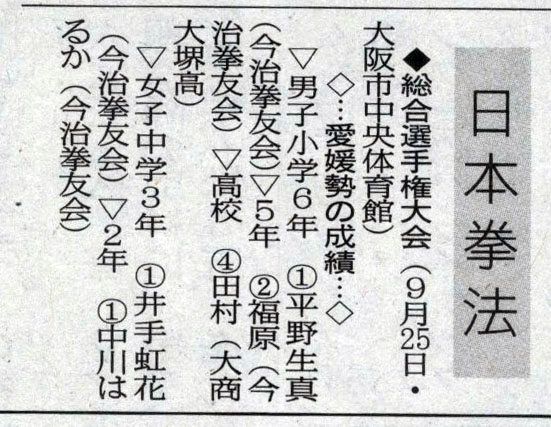 日本拳法
◆総合選手権大会（9月25日・
大阪市中央体育館）
◇…愛媛勢の成績…◇
▽男子小学6年　①平野生真
（今治拳友会）▽5年　②福原（今
治拳友会）▽高校　④田村（大商
大堺高）
▽女子中学3年　①井手虹花
（今治拳友会）▽2年　①中川は
るか（今治拳友会）